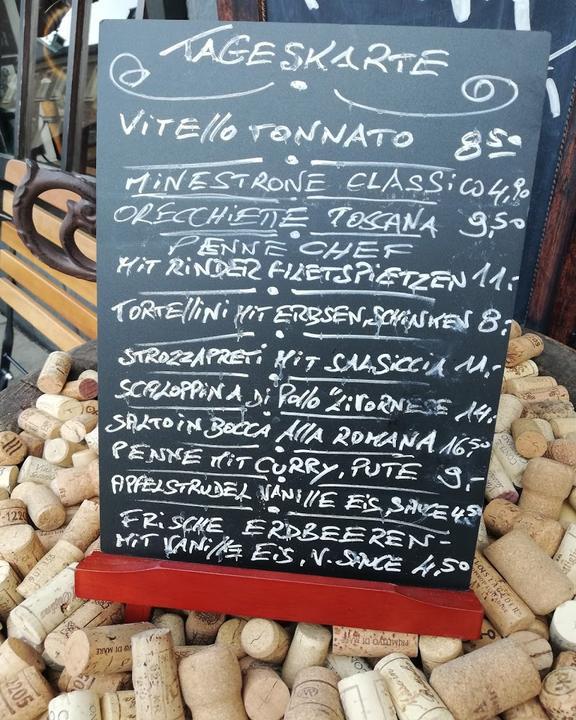 TAGESKARTE
VITEllO TONNATO 8,50
MINESTRONE CLASSiCO 4,90
ORECCHIETTE TOSCANA 9,50
PENNE CHEF
MIT RINDER FILETSPIETZEN 11,-
TORTELLiNi MIT ERBSEN, SCHINKEN 8,-
STROZZAPRETi MIT SALSICCIA 11,-
SCALOPPINA Di Pollo "LIVORNESE 14,-
SALTO IN BOCCA AllA ROMANA 16,50
PENNE MIT CURRY, PUTE 9,-
APFELSTRUDEL VANillE EiS, SAUCE 4,50
FRISCHE ERDBEEREN-
MIT VANillE EiS, V. SAUCE 4,50
PRIMITIVO DI MAN